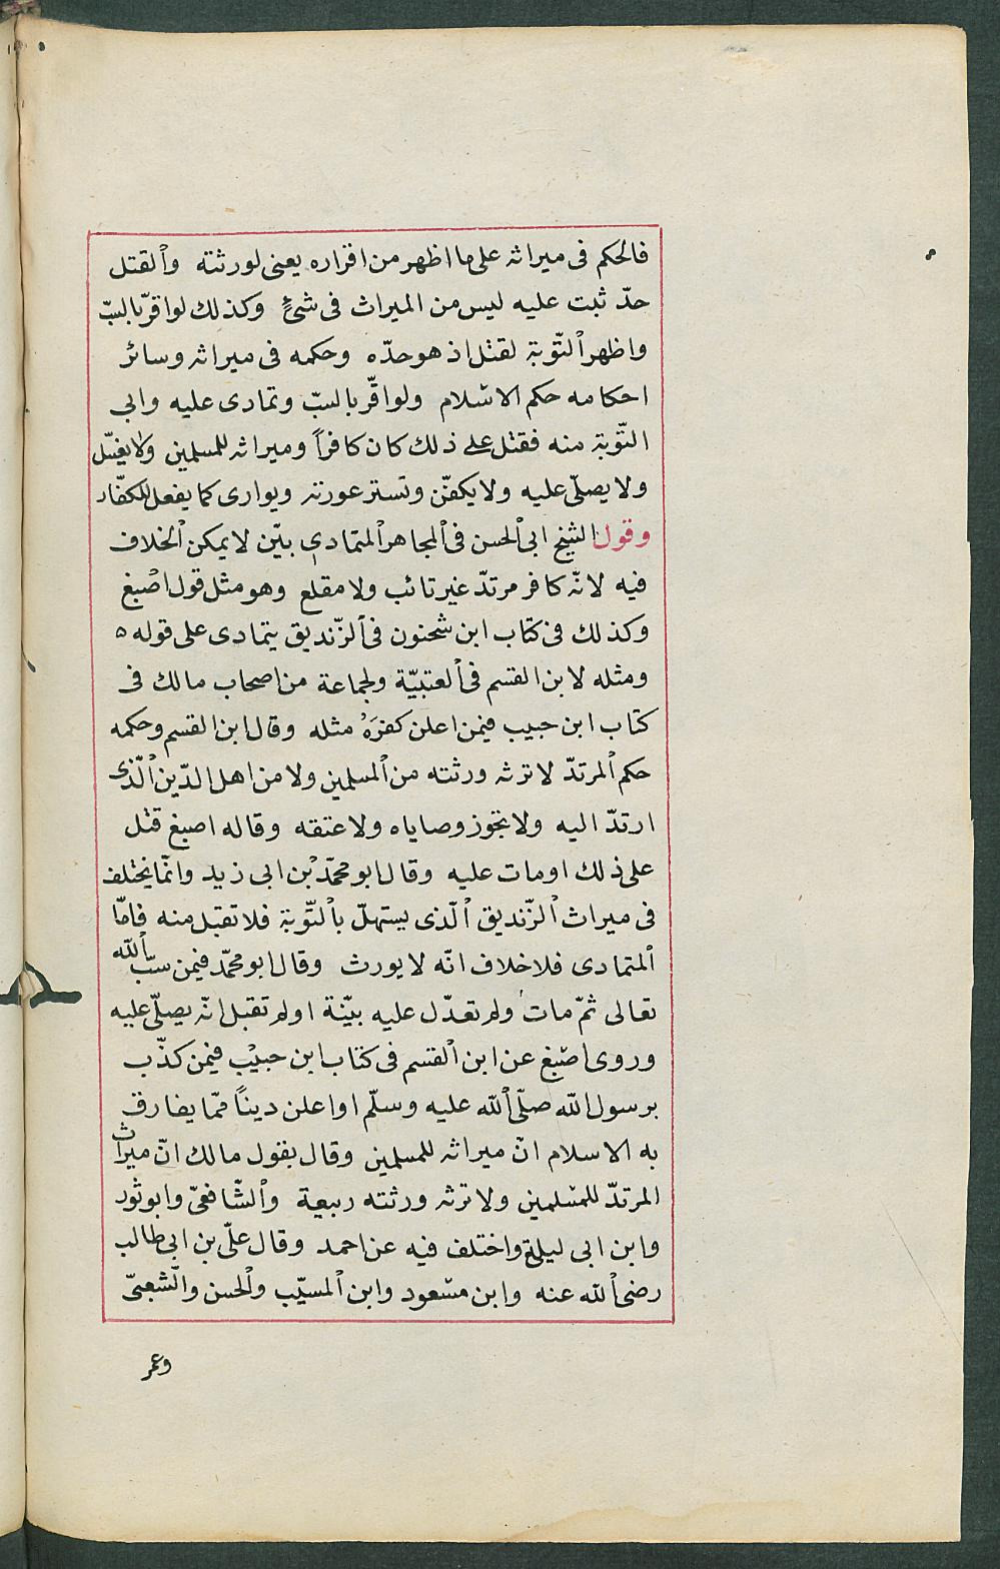 فالحكم فى ميراثه على ما اظهر من اقراره يعنى لورثته والقتل
حدّ ثبت عليه ليس من الميراث فى شئ وكذلك لو اقرّ بالسبّ
واظهر التّوبة لقتل اذ هو حدّه وحكمه فى ميراثه وسائر
احكامه حكم الاسلام ولو اقّر بالسبّ وتمادى عليه وابى
التّوبة منه فقتل على ذلك كان كافراً وميراثه للمسلمين ولا يغسّل
ولا يصلّى عليه ولا يكفّن وتستر عورته ويوارى كما يفعل للكفّار
وقول الشيخ ابى الحسن فى المجاهر المتمادى بيّن لا يمكن الخلاف
فيه لانّه كافر مرتدّ غير تائب ولا مقلع وهو مثل قول اصبغ
وكذلك فى كتاب ابن سحنون فى الزّنديق يتمادى على قوله ه
ومثله لابن القسم فى العتبيّة ولجماعة من اصحاب مالك فى
كتاب ابن حبيب فيمن اعلن كفرَهُ مثله وقال ابن القسم وحكمه
حكم المرتدّ لا ترثه ورثته من المسلمين ولا من اهل الدّين الّذى
ارتدّ اليه ولا تجوز وصاياه ولا عتقه وقاله اصبغ قتل
على ذلك او مات عليه وقال ابو محمّد بن ابى زيد وانّما يختلف
فى ميراث الزّنديق الّذى يستهلّ بالتّوبة فلا تقبل منه فامّا
المتمادى فلا خلاف انّه لا يورث وقال ابو محمّد فيمن سبّ الله
تعالى ثمّ مات ولم تعدّل عليه بيّنة او لم تقبل انّه يصلّى عليه
وروى اصبغ عن ابن القسم فى كتاب ابن حبيب فيمن كذّب
برسول الله صلّى الله عليه وسلّم او اعلن ديناً ممّا يفارق
به الاسلام انّ ميراثه للمسلمين وقال بقول مالك انّ ميراث
المرتدّ للمسلمين ولا ترثه ورثته ربيعة والشّافعىّ وابو ثور
وابن ابى ليلى واختلف فيه عن احمد وقال علّى بن ابى طالب
رضى الله عنه وابن مسعود وابن المسيّب والحسن والشّعبىّ
وعمر